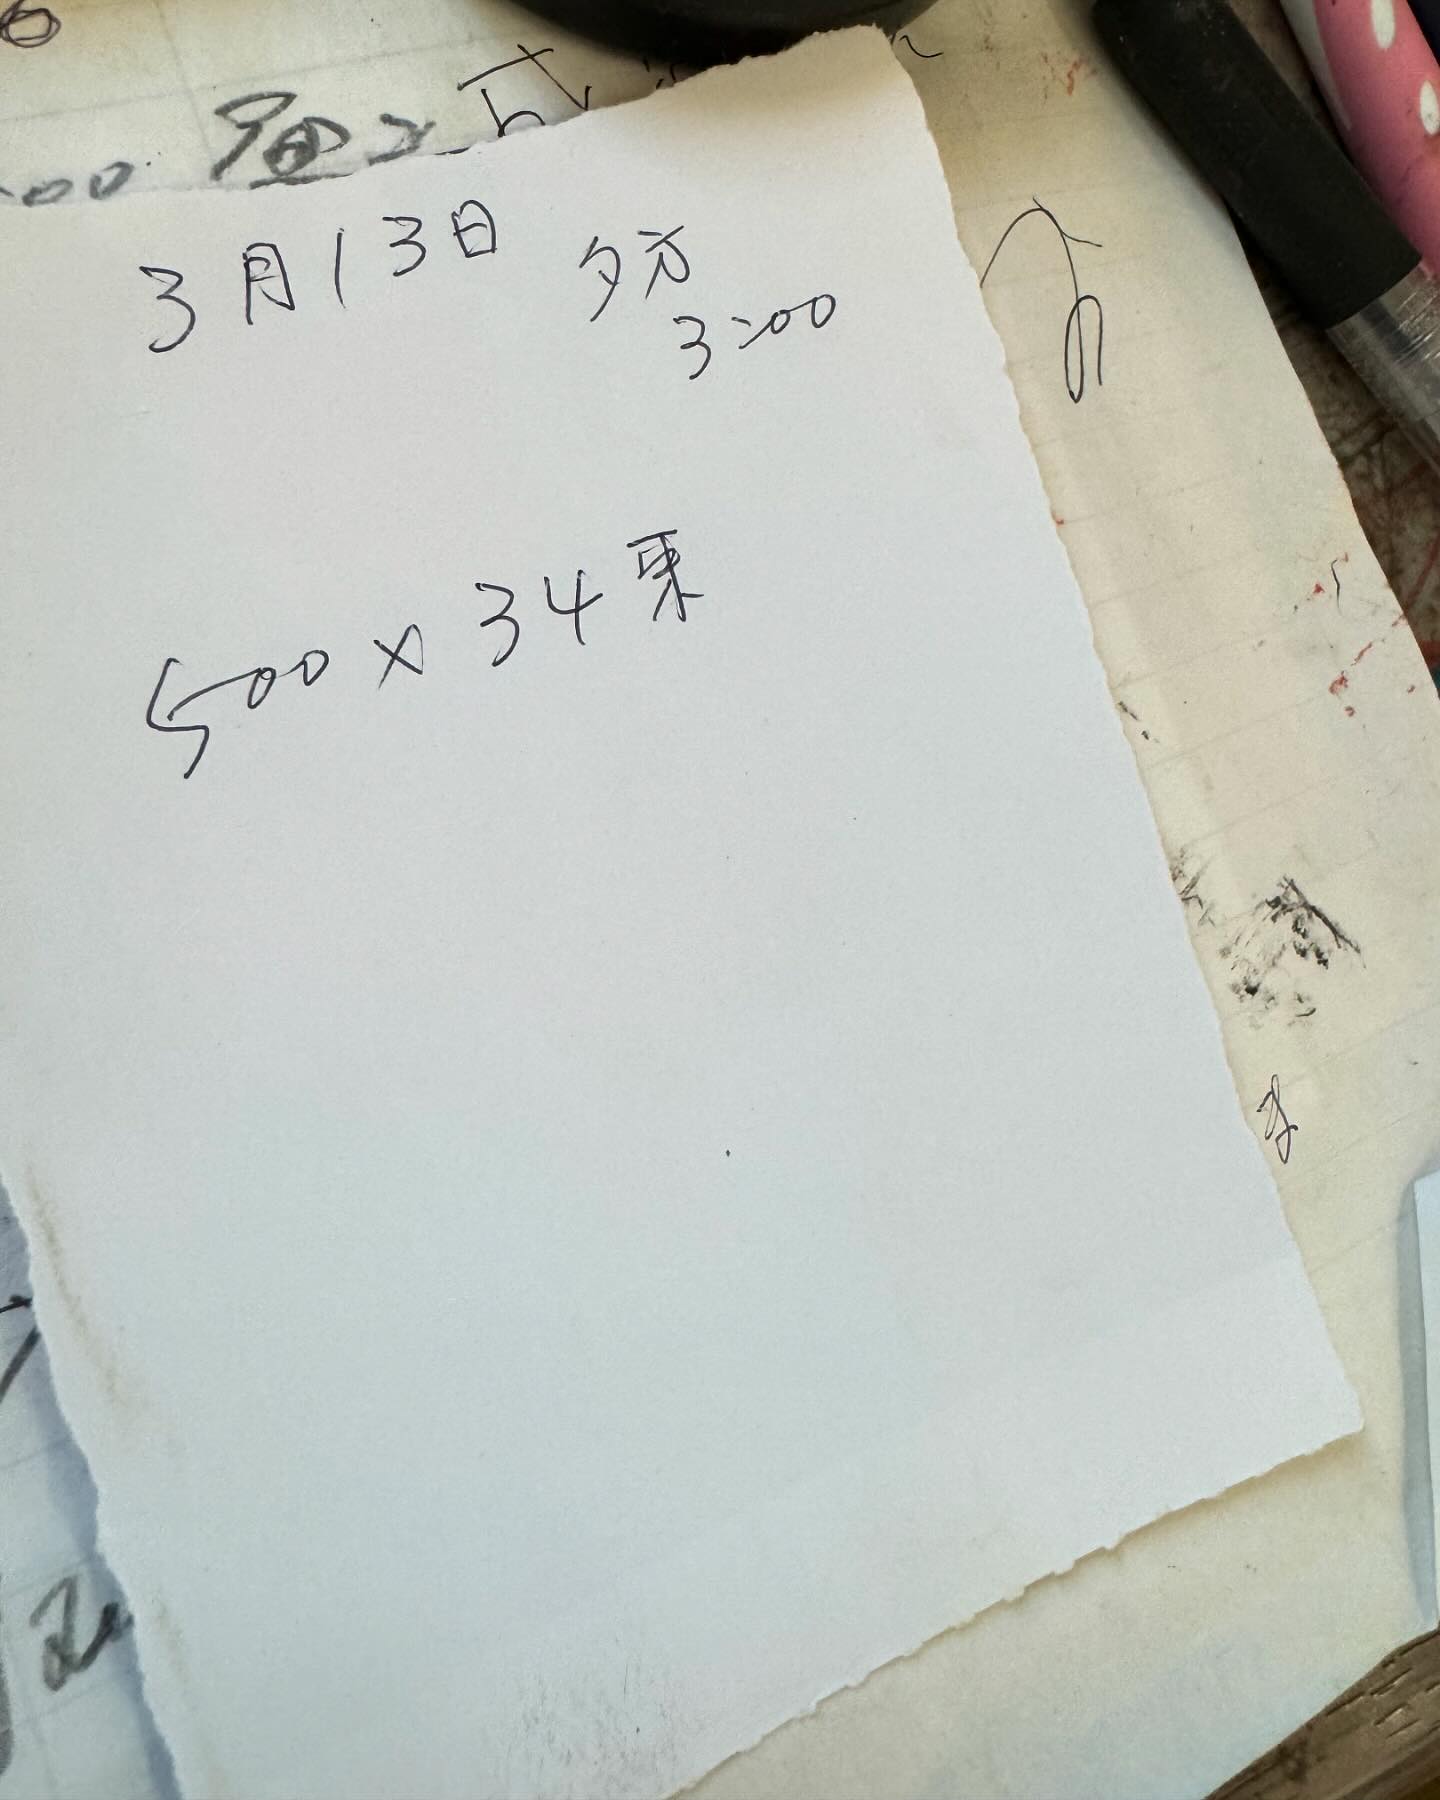 3月13日 夕方
3:00
500×34束